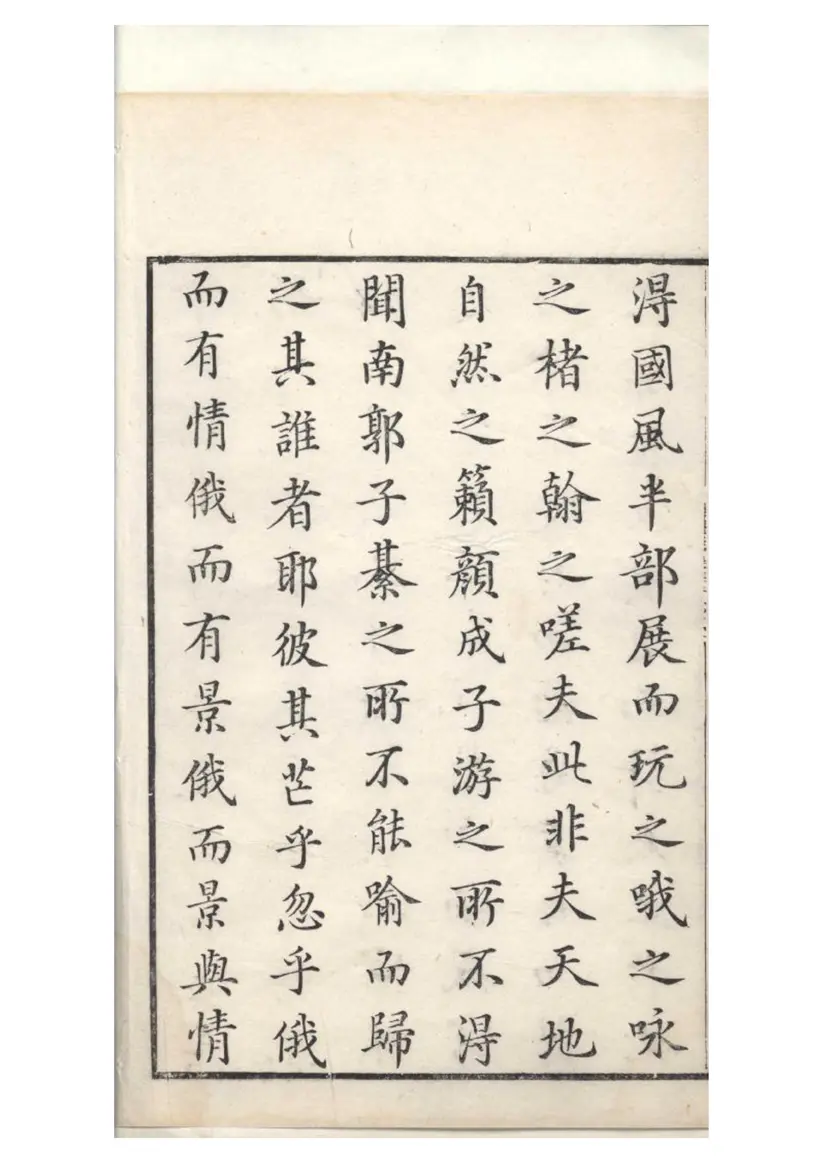 得國風半部展而玩之哦之咏
之楮之翰之嗟夫此非夫天地
自然之籟顔成子游之所不得
聞南郭子綦之所不能喻而歸
之其誰者耶彼其芒乎忽乎俄
而有情俄而有景俄而景與情